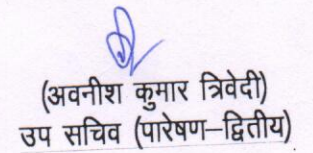 (अवनीश कुमार त्रिवेदी)
उप सचिव (पारेषण–द्वितीय)